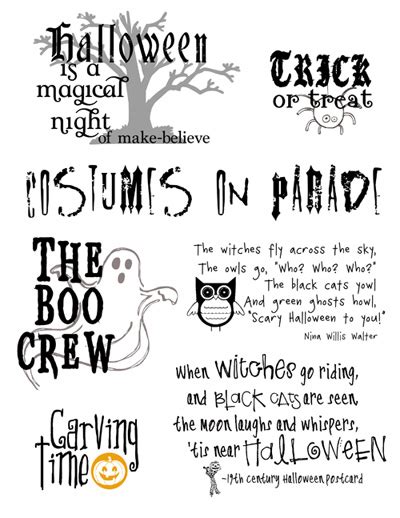 Halloween
is a
magical
night
of make-believe
TRICK
or treat
COSTUMES ON PARADE
THE
BOO
CREW
The witches fly across the sky,
The owls go, "Who? Who? Who?"
The black cats yowl
And green ghosts howl,
"Scary Halloween to you!"
Nina Willis Walter
When Witches go riding,
and BLACK CATS are seen,
the moon laughs and whispers,
'tis near HALLOWEEN
-19th century Halloween Postcard
Carving
time